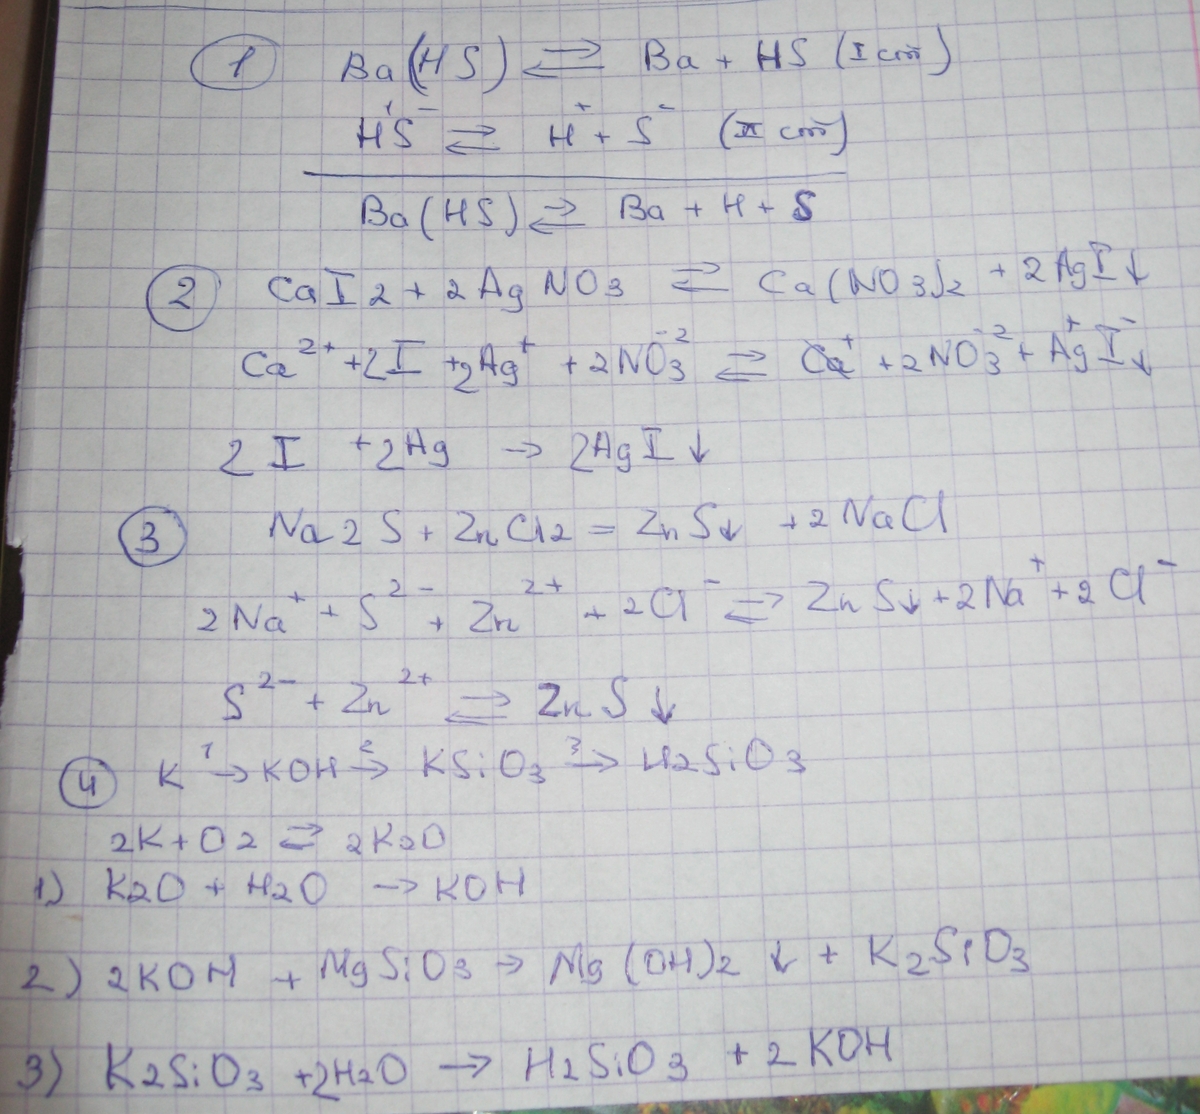 1 Ba(HS) ⇄ Ba + HS (I ст)
H⁺S⁻ ⇄ H⁺ + S⁻ (II ст)
Ba(HS) ⇄ Ba + H + S
2 CaI2 + 2AgNO3 ⇄ Ca(NO3)2 + 2AgI↓
Ca²⁺ + 2I + 2Ag⁺ + 2NO3⁻² ⇄ Ca⁺ + 2NO3⁻² + Ag⁺I⁻↓
2I + 2Ag → 2AgI↓
3 Na2S + ZnCl2 = ZnS↓ + 2NaCl
2Na⁺ + S²⁻ + Zn²⁺ + 2Cl⁻ ⇄ ZnS↓ + 2Na⁺ + 2Cl⁻
S²⁻ + Zn²⁺ ⇄ ZnS↓
4 K 1→ KOH 2→ KSiO3 3→ H2SiO3
2K + O2 ⇄ 2K2O
1) K2O + H2O → KOH
2) 2KOH + MgSiO3 → Mg(OH)2↓ + K2SiO3
3) K2SiO3 + 2H2O → H2SiO3 + 2KOH